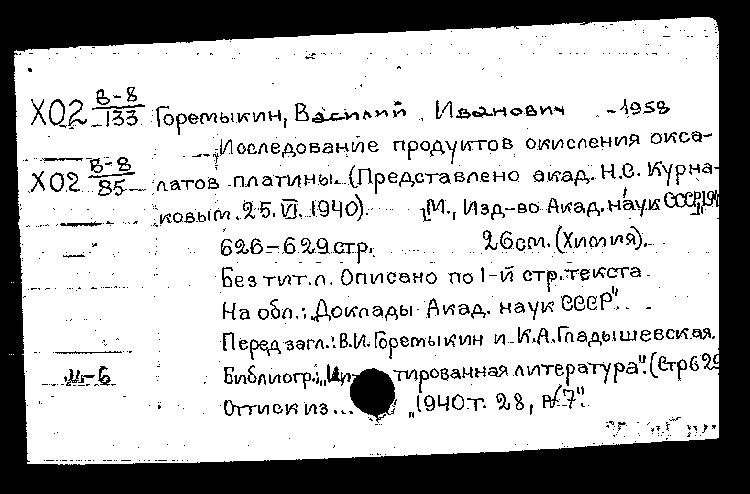 Х02 В-8/133 Горемыкин, Василий Иванович -1958
Исследование продуктов окисления окса-
Х02 В-8/85 латов платины. (Представлено акад. Н.С. Курна-
ковым. 25. VI. 1940). М., Изд-во Акад. наук СССР,
626-629 стр. 26 см. (Химия).
Без тит. л. Описано по 1-й стр. текста
На обл.: "Доклады Акад. наук СССР".
Перед загл.: В.И. Горемыкин и К.А. Гладышевская.
м-б Библиогр.: тированная литература". (Стр 629
Оттиск из... "1940 т. 28, №7".